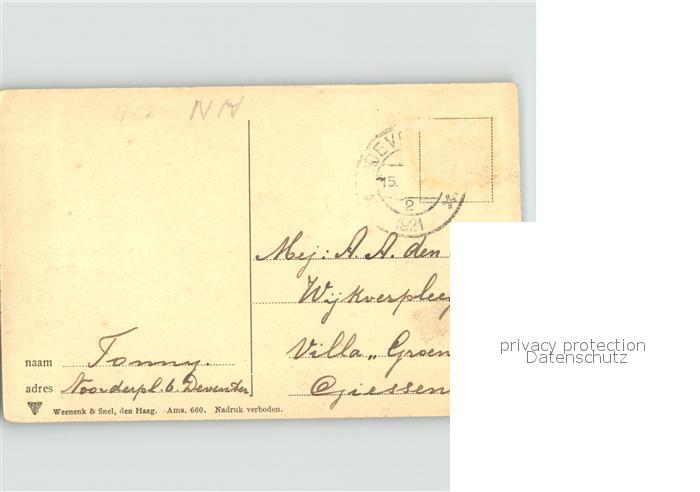 NH
DEV
15.
2
1921
Mej: A. A. den
Wijkverpleeg
Villa „Groen
Giessen
naam Tonny.
adres Noorderpl. 6. Deventer
Weenenk & Snel, den Haag. Ams. 660. Nadruk verboden.
privacy protection
Datenschutz